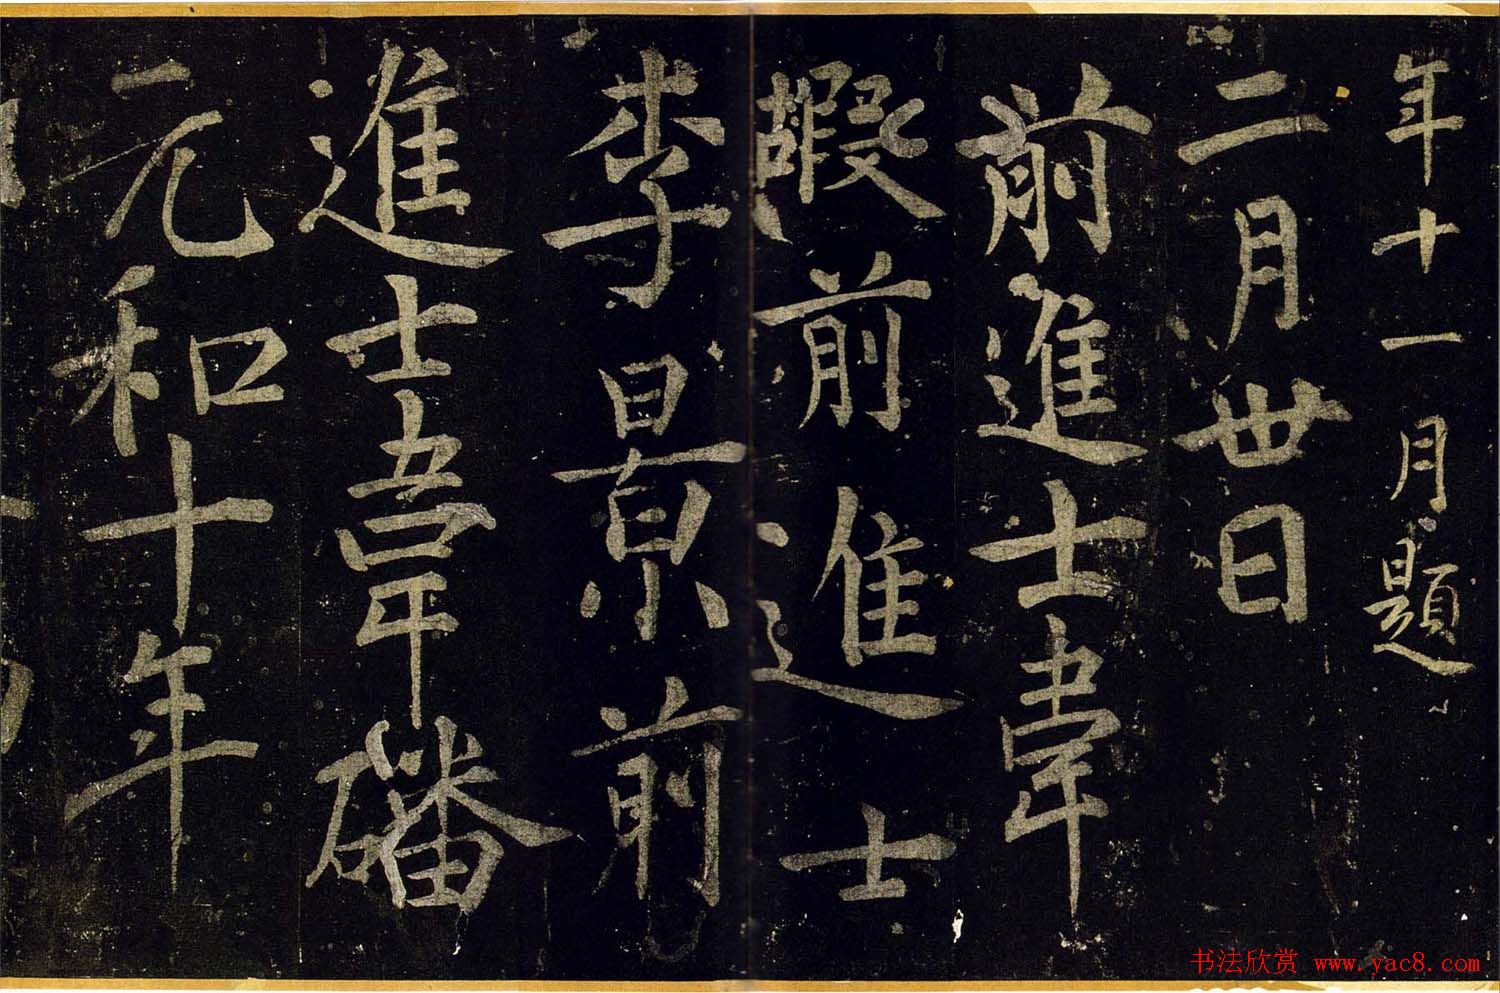 年十一月題
二月卅日
前進士韋
嘏前進士
李景前
進士韋磻
元和十年
书法欣赏 www.yac8.com